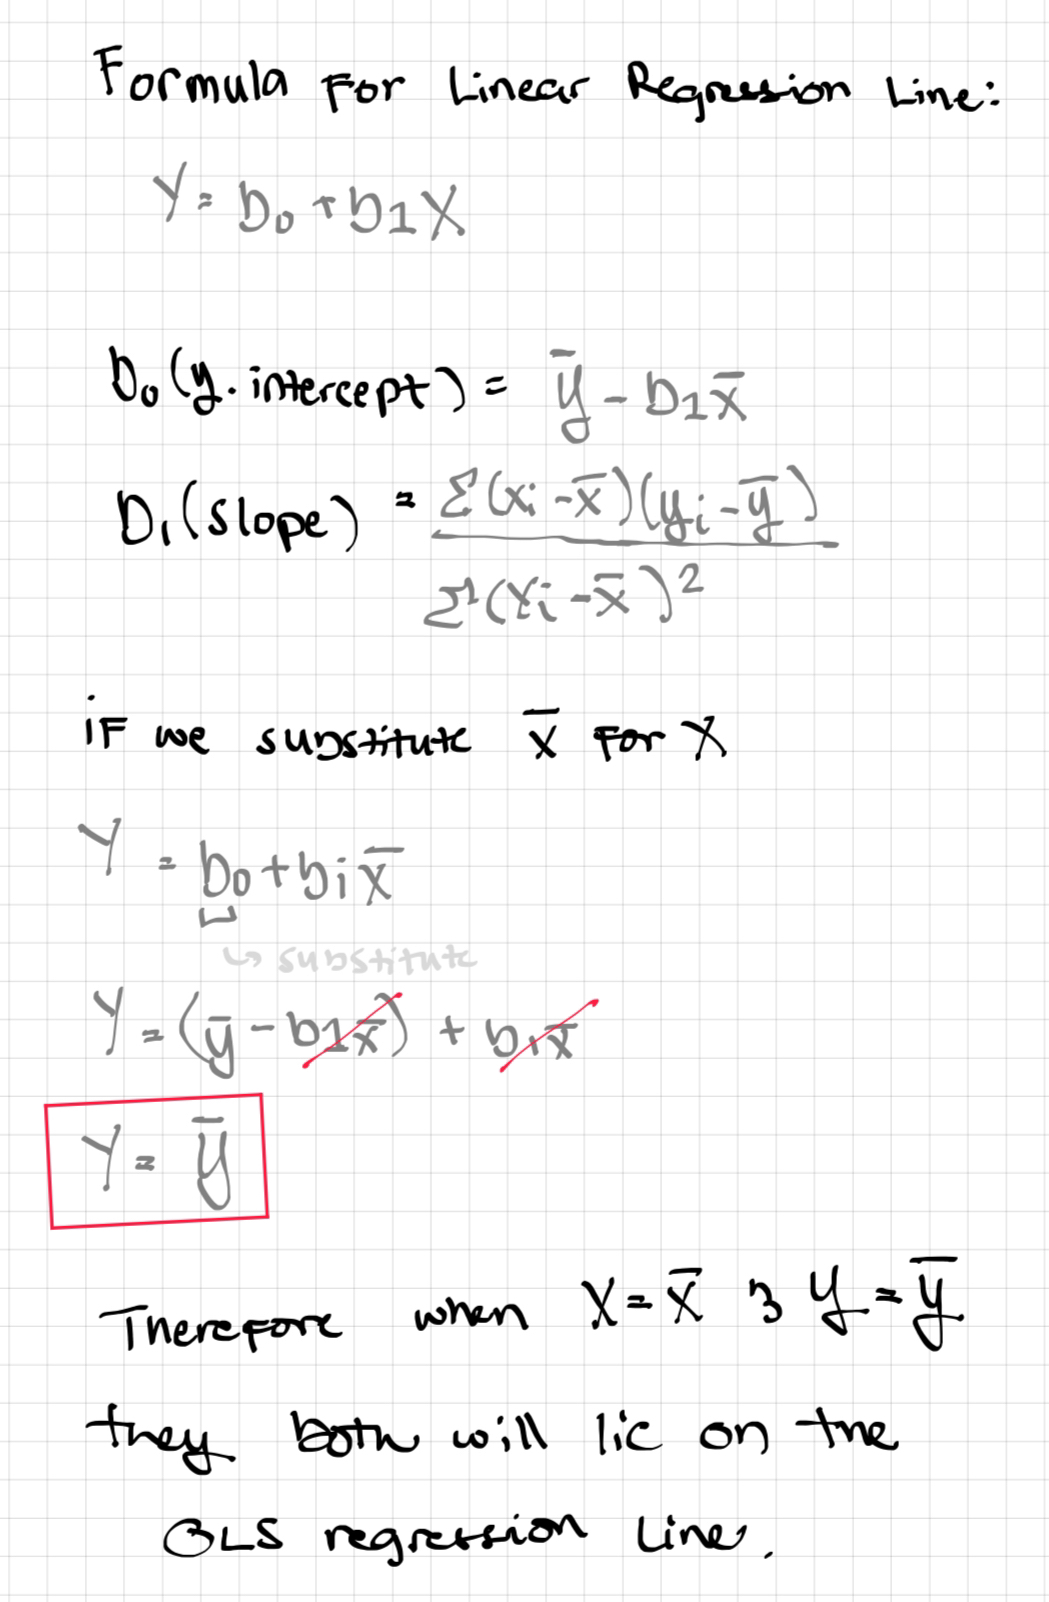 Formula For Linear Regression Line:
Y = b₀ + b1X
b₀ (y. intercept) = ȳ - b1x̄
b₁ (slope) = Σ(xi - x̄)(yi - ȳ)
Σ(xi - x̄)²
iF we substitute x̄ For X
Y = b₀ + b₁x̄
↳ substitute
Y = (ȳ - b1x̄) + b₁x̄
Y = ȳ
Therefore when X = x̄ & y = ȳ
they both will lie on the
OLS regression Line.